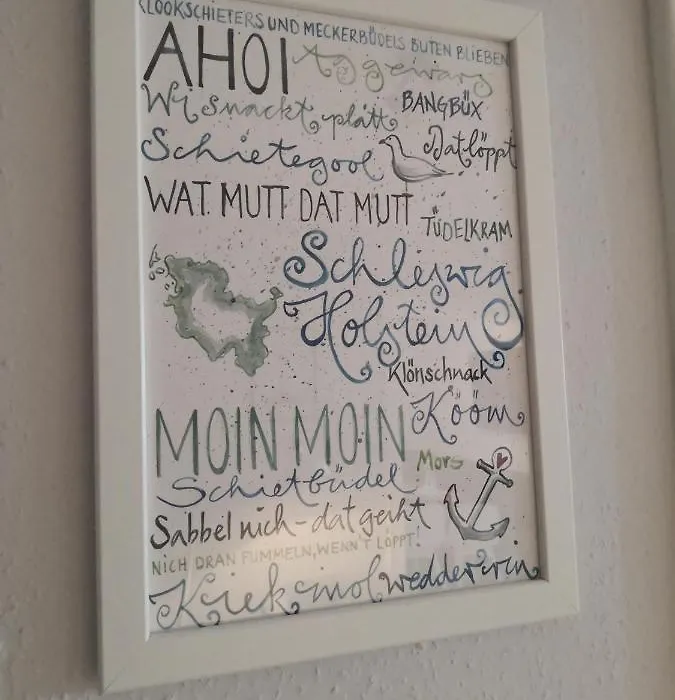 KLOOKSCHIETERS UND MECKERBÜDELS BUTEN BLIEBEN
AHOI
Wi snackt platt
BANGBÜX
Schietegool
Dat löppt
WAT MUTT DAT MUTT
TÜDELKRAM
Schleswig
Holstein
Klönschnack
Kööm
MOIN MOIN
Mors
Schietbüdel
Sabbel nich - dat geiht
NICH DRAN FUMMELN, WENN'T LÖPPT!
Kiek mol wedder rin